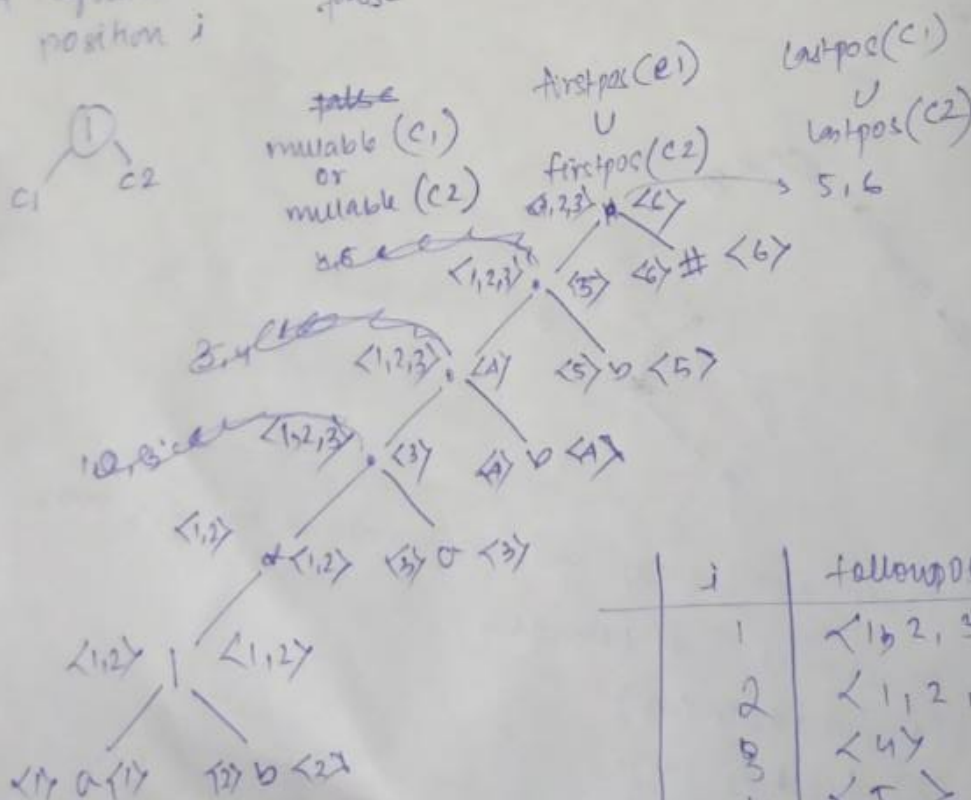 position i
false
nullable (C1)
or
nullable (C2)
firstpos(C1)
U
firstpos(C2)
lastpos(C1)
U
lastpos(C2)
1
C1 C2
→ 5,6
<1,2,3> <6>
<6> # <6>
<1,2,3> <5>
<5> b <5>
<1,2,3> <4>
<4> b <4>
<1,2,3> <3>
<3> a <3>
<1,2> * <1,2>
<1,2> | <1,2>
<1> a <1> <2> b <2>
i followpo
1 <1, 2, 3
2 < 1, 2,
3 <4>